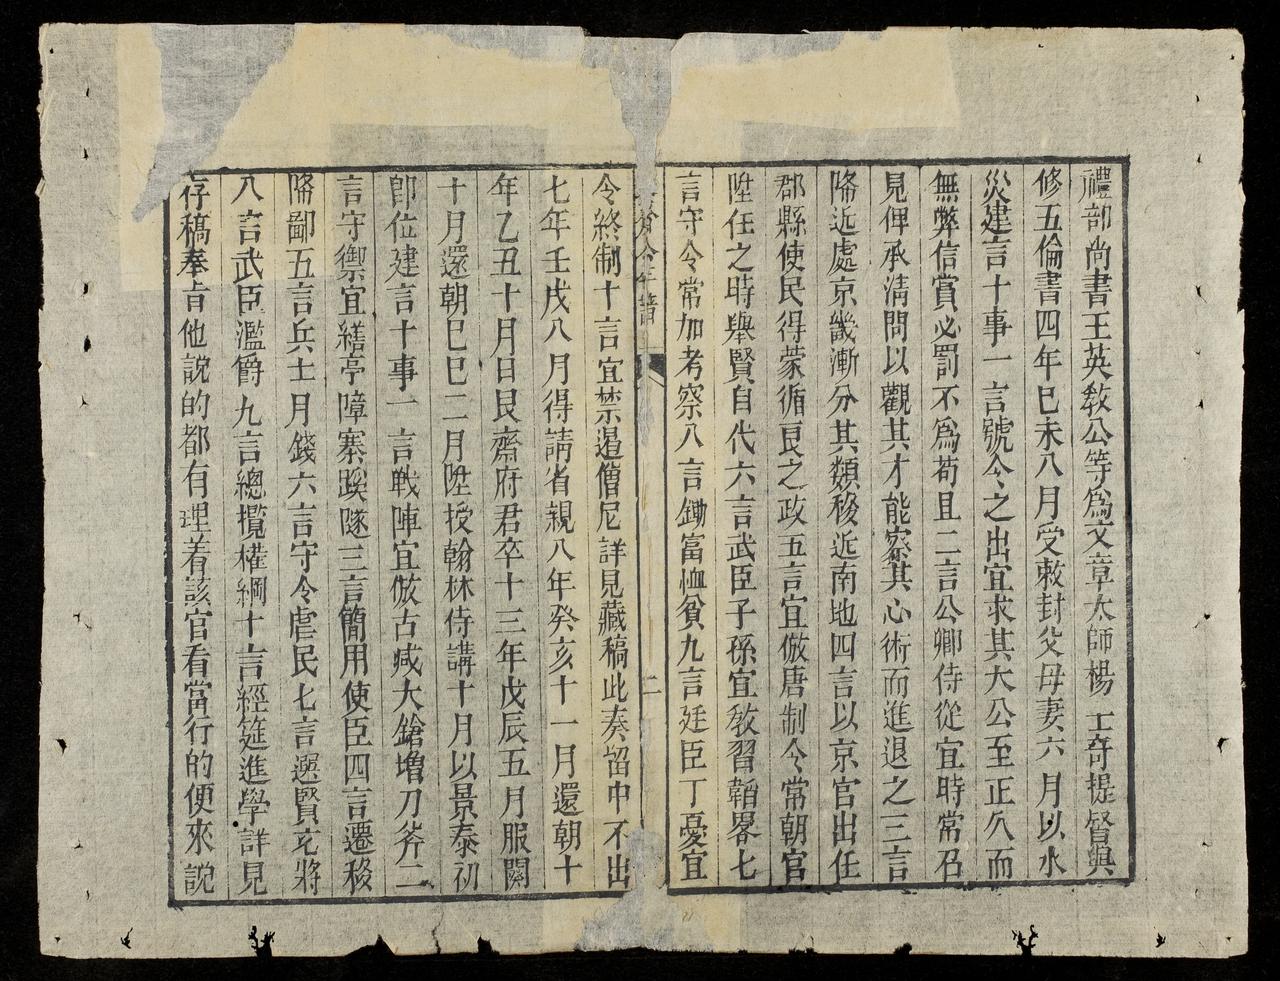 禮部尚書王英教公等爲文章太師楊士奇提督與
修五倫書四年巳未八月受敕封父母妻六月以水
災建言十事一言號令之出宜求其大公至正久而
無弊信賞必罰不爲苟且二言公卿侍從宜時常召
見俾承淸問以觀其才能察其心術而進退之三言
降近處京畿漸分其類移近南地四言以京官出任
郡縣使民得蒙循良之政五言宜倣唐制今常朝官
陞任之時舉賢自代六言武臣子孫宜教習韜畧七
言守令常加考察八言鋤富恤貧九言廷臣丁憂宜
年譜
二
令終制十言宜禁遏僧尼詳見藏稿此奏留中不出
七年壬戌八月得請省親八年癸亥十一月還朝十
年乙丑十月日艮齋府君卒十三年戊辰五月服闋
十月還朝巳巳二月陞授翰林侍講十月以景泰初
卽位建言十事一言戰陣宜倣古减大鎗增刀斧二
言守禦宜繕亭障塞蹊隧三言簡用使臣四言遷移
降鄙五言兵士月錢六言守令虐民七言選賢充將
八言武臣濫爵九言總攬權綱十言經筵進學詳見
存稿奉旨他說的都有理着該官看當行的便來說